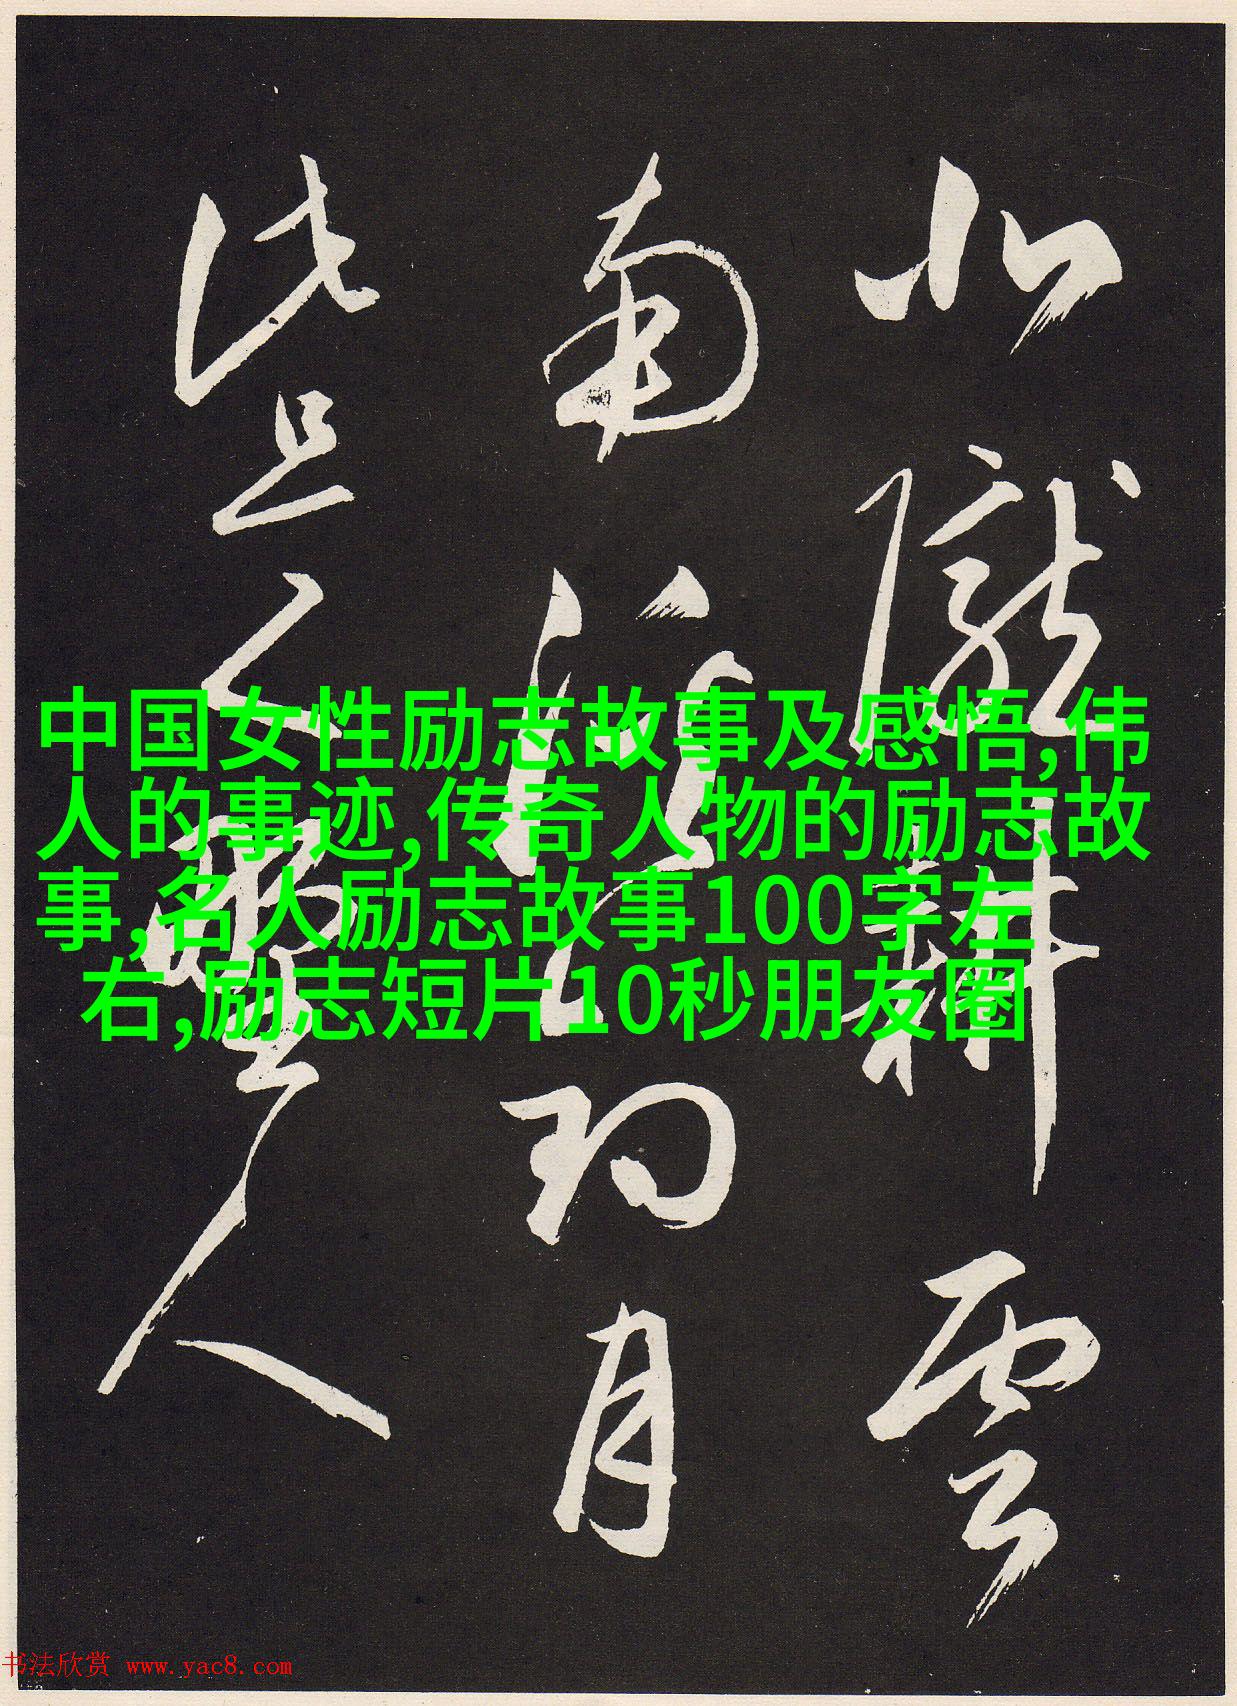 北隴耕雲
南溪釣月
此是野人
中国女性励志故事及感悟,伟
人的事迹,传奇人物的励志故
事,名人励志故事100字左
右,励志短片10秒朋友圈
书法欣赏 www.yac8.com